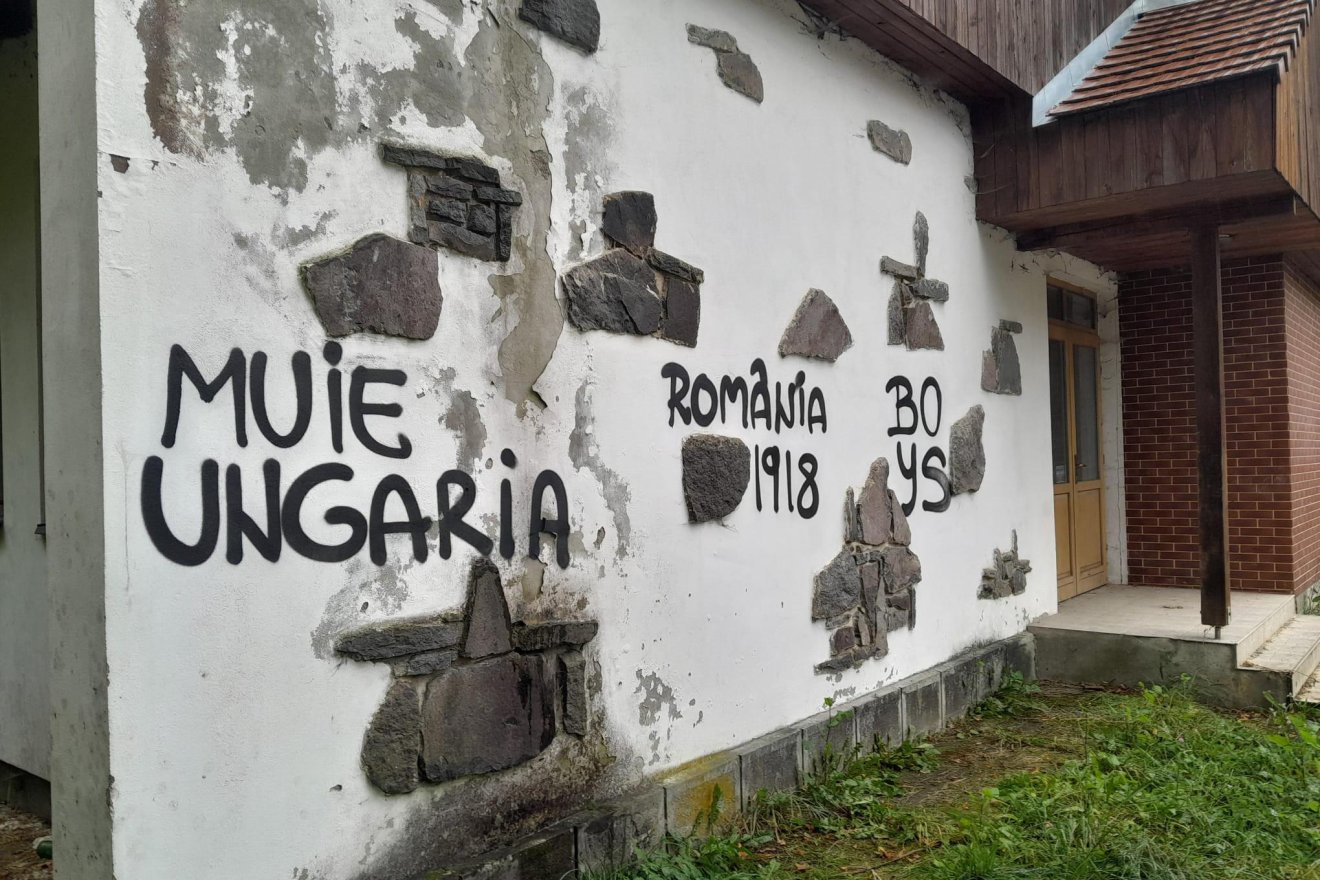 MUiE
UNGARiA
ROMÂNIA
1918
BO
YS